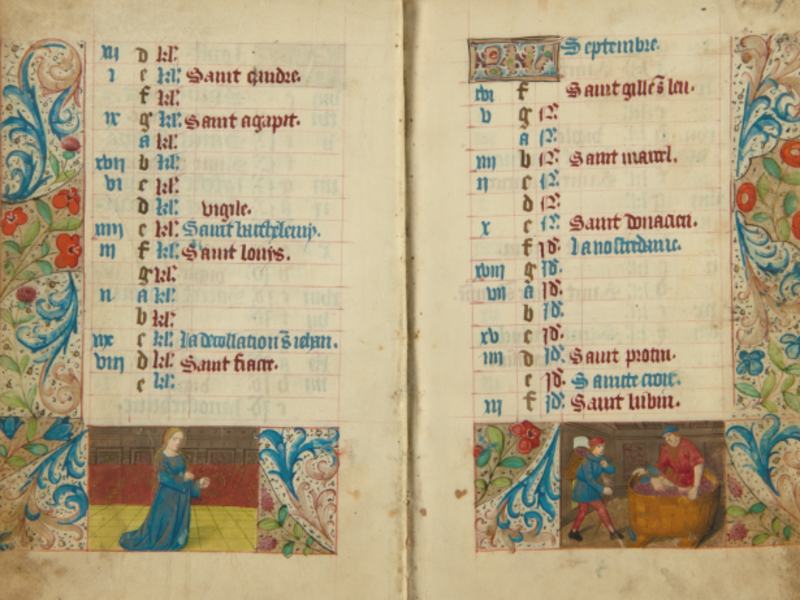 xi d kl'.
i e kl'. Saint andre.
f kl'.
ix g kl'. Saint agapit.
a kl'.
xvii b kl'.
vi c kl'.
d kl'. vigile.
e kl'. Saint
iii f kl'. Saint louys.
g kl'.
ii a kl'.
b kl'.
xix c kl'. la decollation s iehan.
viii d kl'. Saint fiacre.
e kl'.
KL Septembre.
xvi f Saint gille s leu.
v g N.
a N.
b N. Saint marcel.
ii c N.
d N.
x e N. Saint donacien.
f id. la nostre dame.
xviii g id.
vii a id.
b id.
xv c id.
iiii d id. Saint protin.
e id. Saincte croix.
f id. Saint lubin.